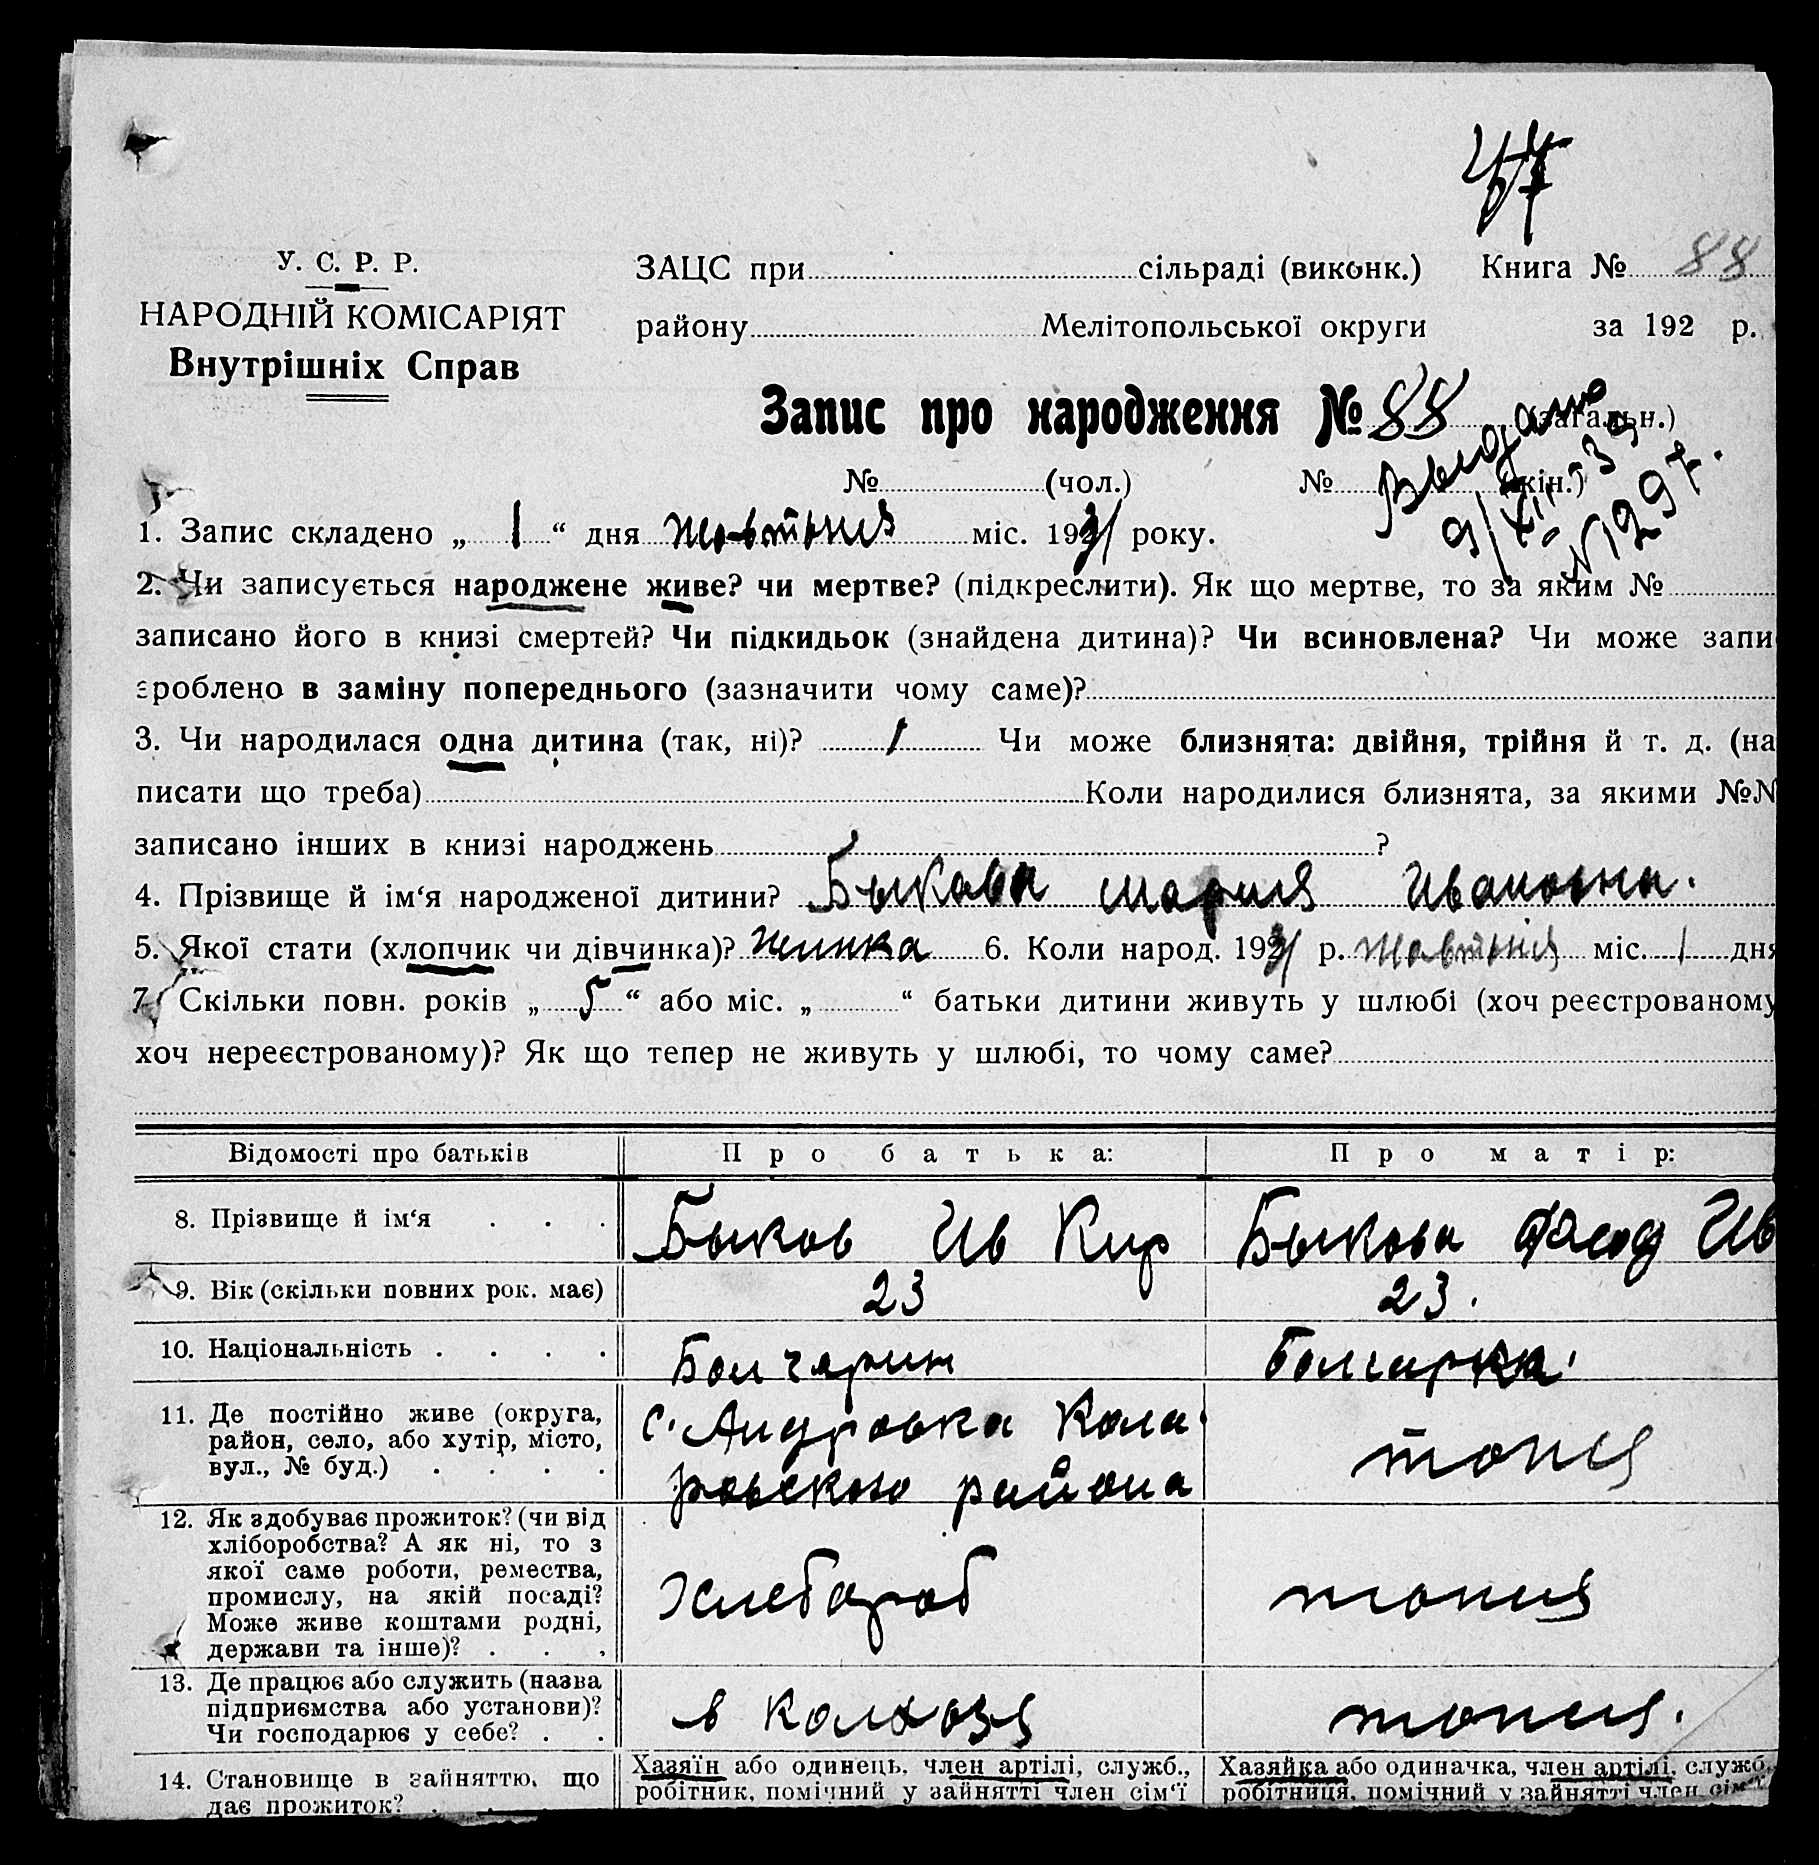 47
У. С. Р. Р.
НАРОДНІЙ КОМІСАРІЯТ
Внутрішніх Справ
ЗАЦС при сільраді (виконк.) Книга № 88
району Мелітопольської округи за 192 р.
Запис про народження № 88 (загальн.)
№ (чол.) № (жін.)
Выдано
9/XII-39
№1297.
1. Запис складено „ 1 “ дня жовтния міс. 1931 року.
2. Чи записується народжене живе? чи мертве? (підкреслити). Як що мертве, то за яким №
записано його в книзі смертей? Чи підкидьок (знайдена дитина)? Чи всиновлена? Чи може запи
зроблено в заміну попереднього (зазначити чому саме)?
3. Чи народилася одна дитина (так, ні)? 1 Чи може близнята: двійня, трійня й т. д. (на
писати що треба) Коли народилися близнята, за якими №№
записано інших в книзі народжень ?
4. Прізвище й ім‘я народженої дитини? Быкова Мария Ивановна.
5. Якої стати (хлопчик чи дівчинка)? жинка 6. Коли народ. 1931 р. жавтния міс. 1 дня
7. Скільки повн. років „ 5 “ або міс. „ “ батьки дитини живуть у шлюбі (хоч реєстрованому
хоч нереєстрованому)? Як що тепер не живуть у шлюбі, то чому саме?
Відомості про батьків Про батька: Про матір:
8. Прізвище й ім‘я . . . Быков Ив Кир Быкова Ив
9. Вік (скільки повних рок. має) 23 23.
10. Національність . . . . Болгарин болгарка.
11. Де постійно живе (округа, район, село, або хутір, місто, вул., № буд.) . . . .
с. Андровка Кола
ровского района
тония
12. Як здобуває прожиток? (чи від хліборобства? А як ні, то з якої саме роботи, ремества, промислу, на якій посаді? Може живе коштами родні, держави та інше)? . . .
хлебороб тония
13. Де працює або служить (назва підприємства або установи)? Чи господарює у себе? . .
в колхозя тония.
14. Становище в зайняттю, що дає прожиток? . .
Хазяїн або одинець, член артілі, служб.,
робітник, помічний у зайнятті член сім‘ї
Хазяйка або одиначка, член артілі, служб.,
робітниця, помічний у зайнятті член сім‘ї